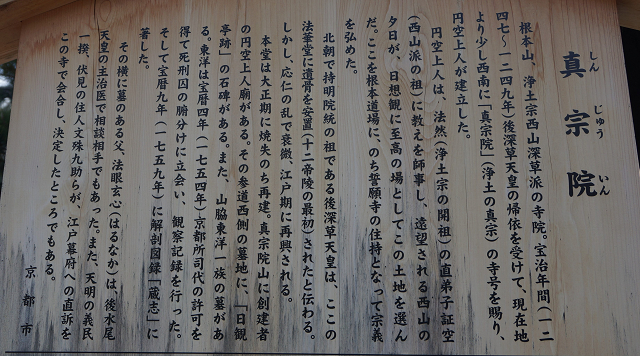 真宗院
しんじゅういん
根本山、浄土宗西山深草派の寺院。宝治年間（一二
四七～一二四九年）後深草天皇の帰依を受けて、現在地
より少し西南に「真宗院」（浄土の真宗）の寺号を賜り、
円空上人が建立した。
円空上人は、法然（浄土宗の開祖）の直弟子証空
（西山派の祖）に教えを師事し、遠望される西山の
夕日が、日想観に至高の場としてこの土地を選ん
だ。ここを根本道場に、のち誓願寺の住持となって宗義
を弘めた。
北朝で持明院統の祖である後深草天皇は、ここの
法華堂に遺骨を安置（十二帝陵の最初）されたと伝わる。
しかし、応仁の乱で衰微、江戸期に再興される。
本堂は大正期に焼失のち再建。真宗院山に創建者
の円空上人廟がある。その参道西側の墓地に、「日観
亭跡」の石碑がある。また、山脇東洋一族の墓があ
る。東洋は宝暦四年（一七五四年）京都所司代の許可を
得て死刑囚の腑分けに立会い、観察記録を行った。
そして宝暦九年（一七五九年）に解剖図録「蔵志」に
著した。
その横に墓のある父、法眼玄心（はるなか）は、後水尾
天皇の主治医で相談相手でもあった。また、天明の義民
一揆、伏見の住人文珠九助らが、江戸幕府への直訴を
この寺で会合し、決定したところでもある。
京都市